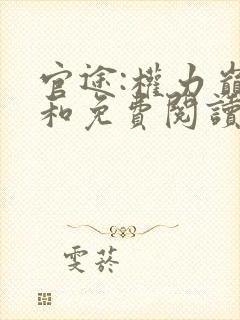 官途:權力巔
和免費閱讀
雯菸